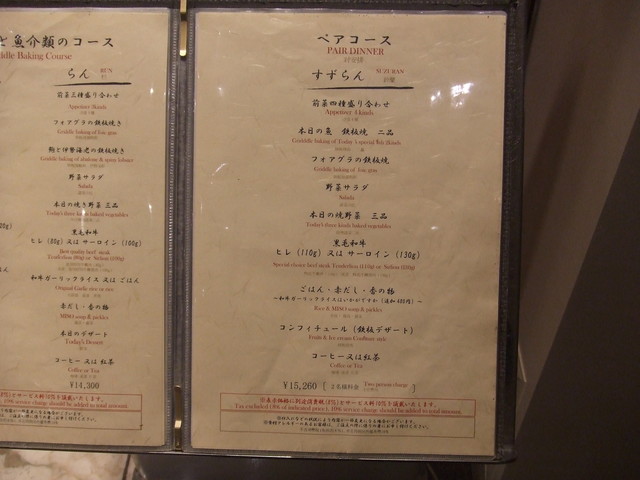 と魚介類のコース
ddle Baking Course
らん RUN
前菜三種盛り合わせ
Appetizer 3kinds
フォアグラの鉄板焼き
Griddle baking of foie gras
鮑と伊勢海老の鉄板焼き
Griddle baking of abalone & spiny lobster
野菜サラダ
Salada
本日の焼き野菜 三品
Today's three kinds baked vegetables
黒毛和牛
ヒレ (80g) 又は サーロイン (100g)
Best quality beef steak
Tenderloin (80g) or Sirloin (100g)
和牛ガーリックライス 又は ごはん
Original Garlic rice or rice
赤だし・香の物
MISO soup & pickles
本日のデザート
Today's Dessert
コーヒー 又は 紅茶
Coffee or Tea
¥14,300
10% service charge should be added to total amount.
ペアコース
PAIR DINNER
すずらん SUZU RAN
前菜四種盛り合わせ
Appetizer 4 kinds
本日の魚 鉄板焼 二品
Griddle baking of Today's special fish 2kinds
フォアグラの鉄板焼
Griddle baking of foie gras
野菜サラダ
Salada
本日の焼野菜 三品
Today's three kinds baked vegetables
黒毛和牛
ヒレ (110g) 又は サーロイン (130g)
Special choice beef steak Tenderloin (110g) or Sirloin (130g)
ごはん・赤だし・香の物
~和牛ガーリックライスはいかがですか (追加 400円) ~
Rice & MISO soup & pickles
コンフィチュール (鉄板デザート)
Fruits & Ice cream Confiture style
コーヒー又は紅茶
Coffee or Tea
¥15,260 [ 2名様料金 Two person charge ]
Tax excluded (8% of indicated price), 10% service charge should be added to total amount.